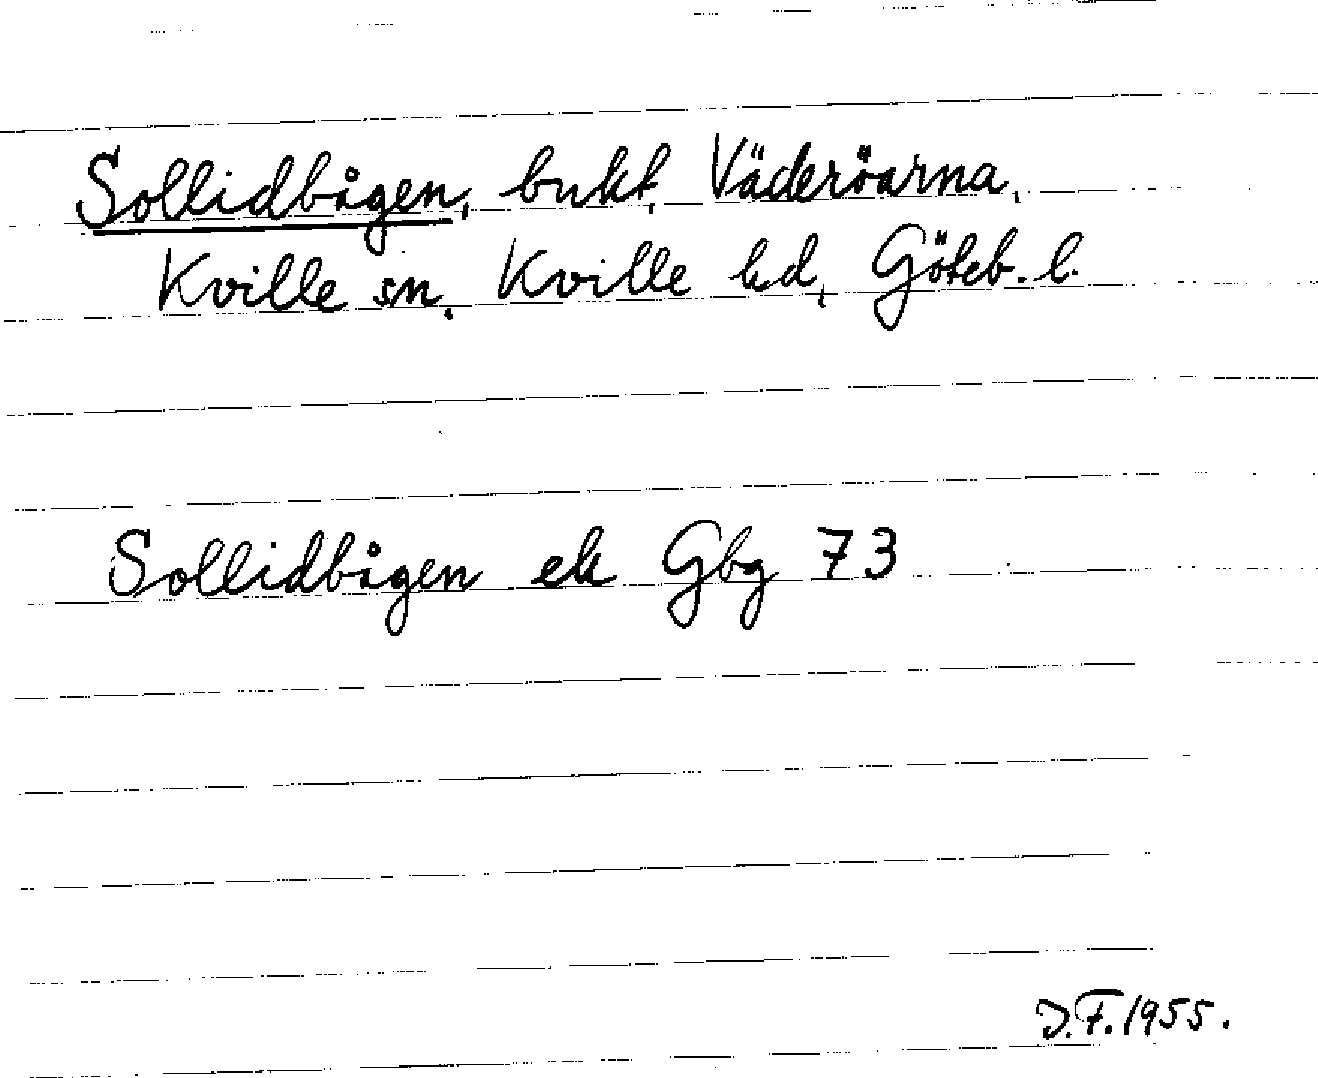 Sollidbågen, bukt, Väderöarna,
Kville sn, Kville hd, Göteb. l.
Sollidbågen ek Gbg 73
D.F. 1955.